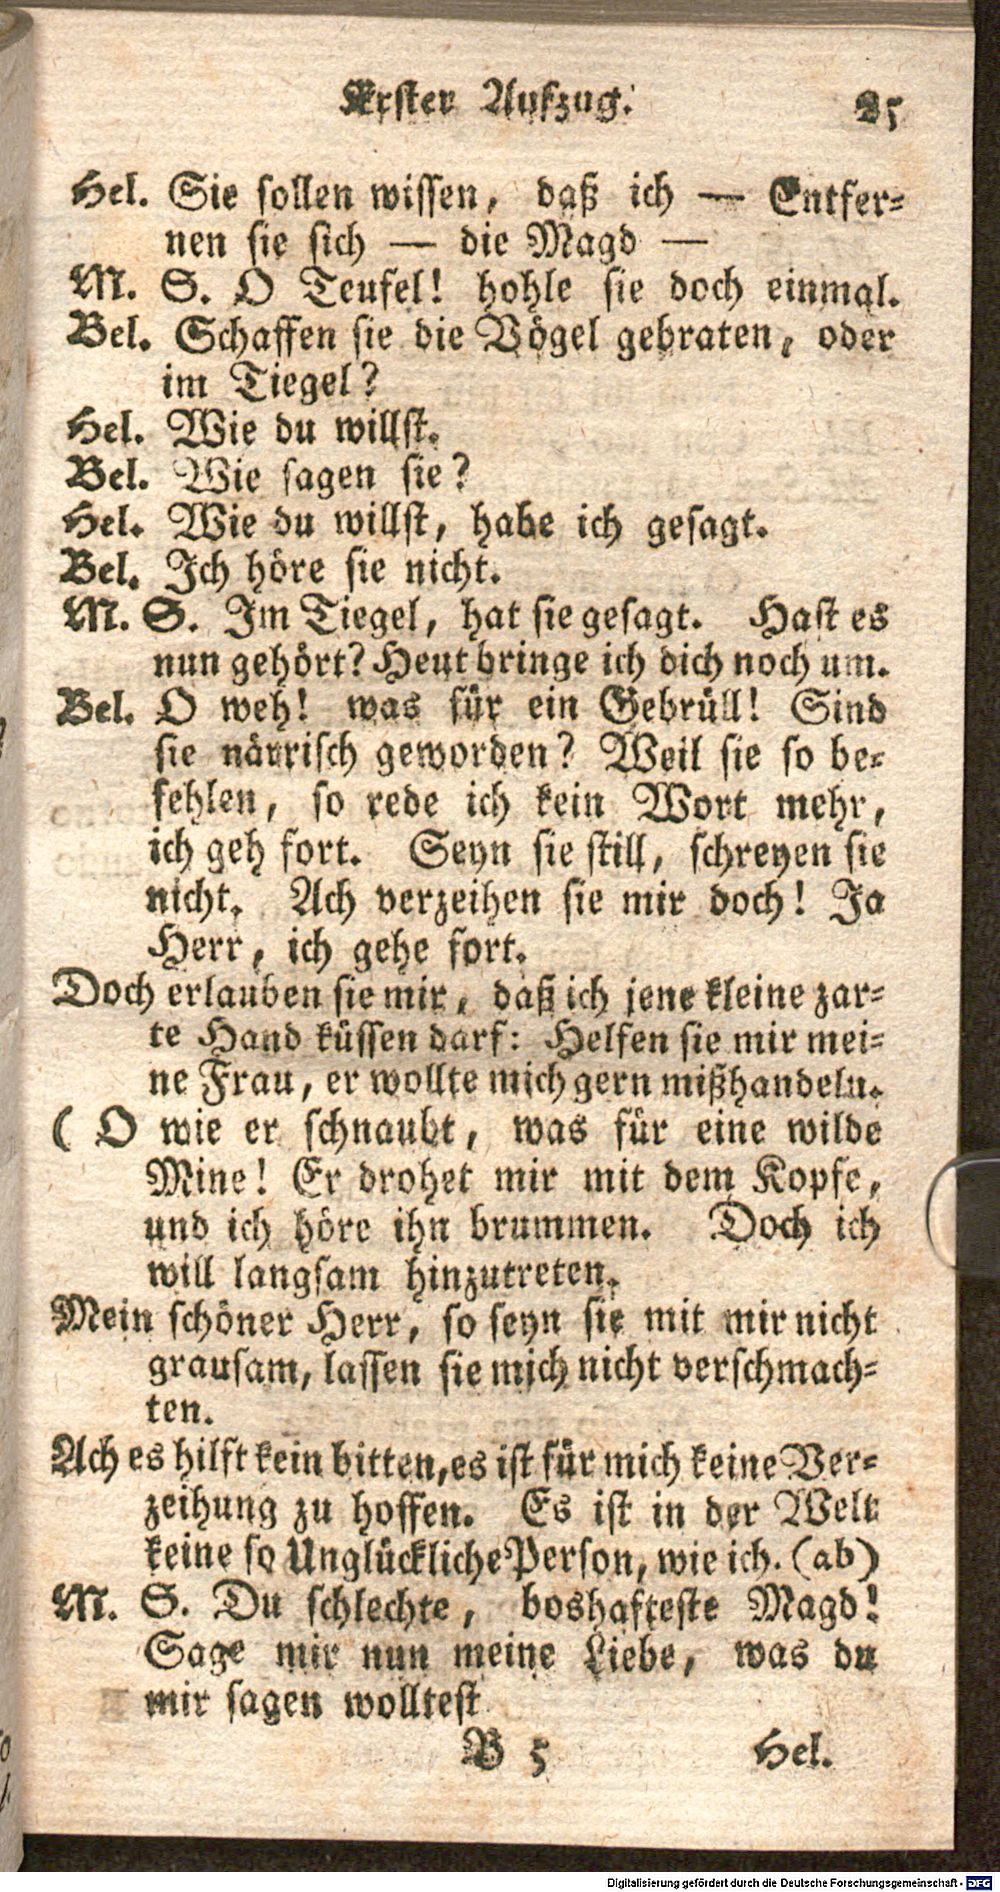 Erster Aufzug. 25
Hel. Sie sollen wissen, daß ich — Entfer-
nen sie sich — die Magd —
M. S. O Teufel! hohle sie doch einmal.
Bel. Schaffen sie die Vögel gebraten, oder
im Tiegel?
Hel. Wie du willst.
Bel. Wie sagen sie?
Hel. Wie du willst, habe ich gesagt.
Bel. Ich höre sie nicht.
M. S. Im Tiegel, hat sie gesagt. Hast es
nun gehört? Heut bringe ich dich noch um.
Bel. O weh! was für ein Gebrüll! Sind
sie närrisch geworden? Weil sie so be-
fehlen, so rede ich kein Wort mehr,
ich geh fort. Seyn sie still, schreyen sie
nicht. Ach verzeihen sie mir doch! Ja
Herr, ich gehe fort.
Doch erlauben sie mir, daß ich jene kleine zar-
te Hand küssen darf: Helfen sie mir mei-
ne Frau, er wollte mich gern mißhandeln.
( O wie er schnaubt, was für eine wilde
Mine! Er drohet mir mit dem Kopfe,
und ich höre ihn brummen. Doch ich
will langsam hinzutreten.
Mein schöner Herr, so seyn sie mit mir nicht
grausam, lassen sie mich nicht verschmach-
ten.
Ach es hilft kein bitten, es ist für mich keine Ver-
zeihung zu hoffen. Es ist in der Welt
keine so Unglückliche Person, wie ich. (ab)
M. S. Du schlechte, boshafteste Magd!
Sage mir nun meine Liebe, was du
mir sagen wolltest
B 5 Hel.
Digitalisierung gefördert durch die Deutsche Forschungsgemeinschaft - DFG